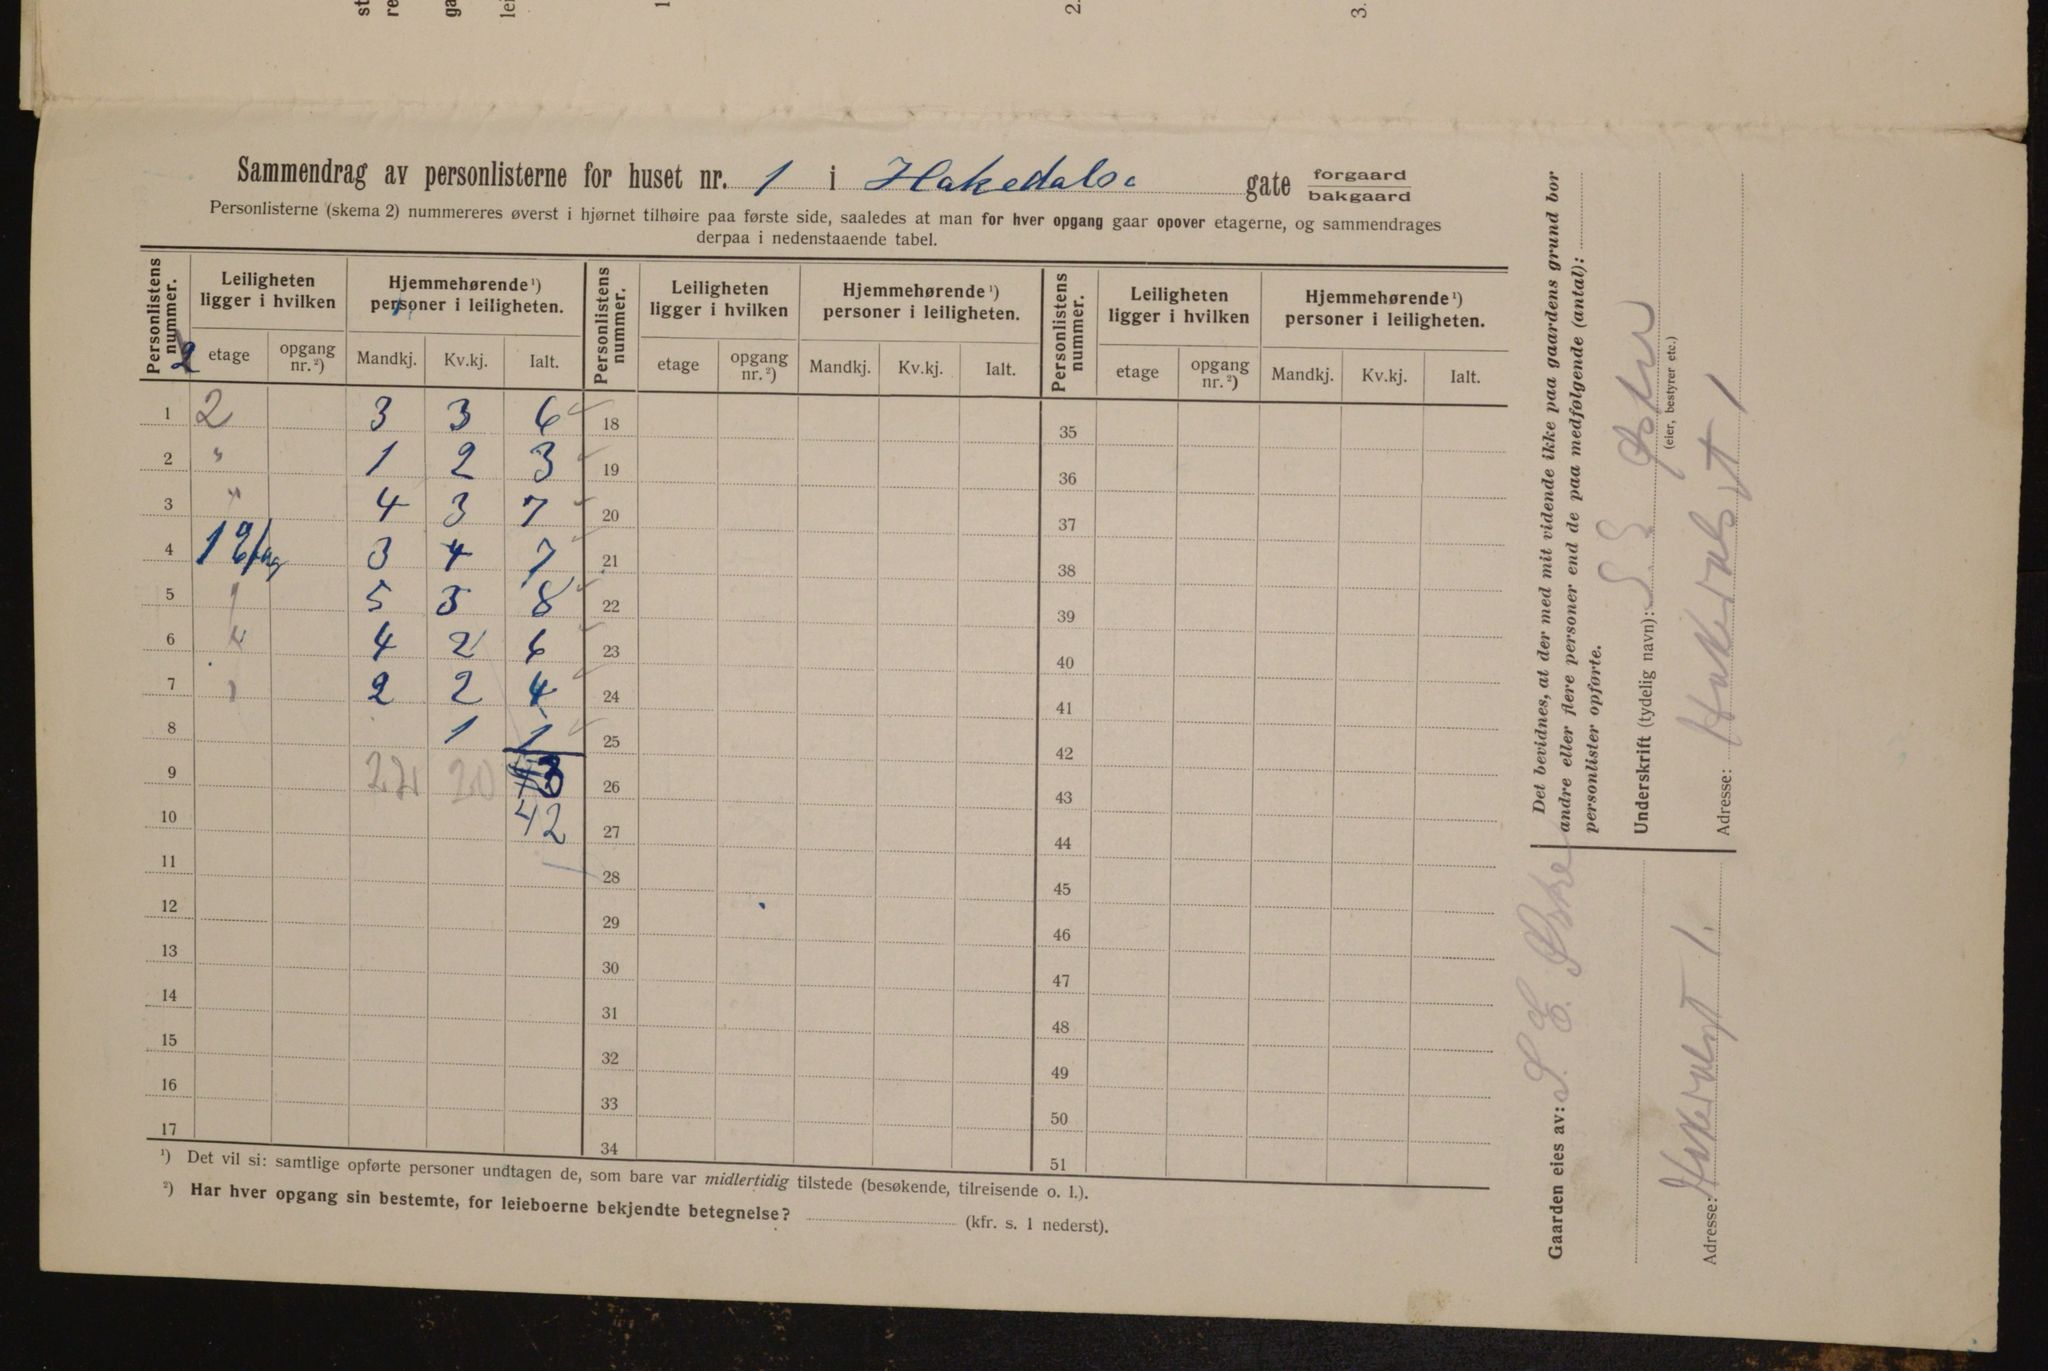 Sammendrag av personlisterne for huset nr. 1 i Hakedals. gate forgaard bakgaard
Personlisterne (skema 2) nummereres øverst i hjørnet tilhøire paa første side, saaledes at man for hver opgang gaar opover etagerne, og sammendrages
derpaa i nedenstaaende tabel.
Personlistens nummer. Leiligheten ligger i hvilken Hjemmehørende ¹) personer i leiligheten. Personlistens nummer. Leiligheten ligger i hvilken Hjemmehørende ¹) personer i leiligheten. Personlistens nummer. Leiligheten ligger i hvilken Hjemmehørende ¹) personer i leiligheten.
2 etage opgang nr. ²) Mandkj. Kv.kj. Ialt. etage opgang nr. ²) Mandkj. Kv.kj. Ialt. etage opgang nr. ²) Mandkj. Kv.kj. Ialt.
1 2 3 3 6 18 35
2 " 1 2 3 19 36
3 " 4 3 7 20 37
4 1 Etag 3 4 7 21 38
5 " 5 3 8 22 39
6 " 4 2 6 23 40
7 " 2 2 4 24 41
8 1 1 25 42
9 22 20 43 26 43
10 42 27 44
11 28 45
12 29 46
13 30 47
14 31 48
15 32 49
16 33 50
17 34 51
¹) Det vil si: samtlige opførte personer undtagen de, som bare var midlertidig tilstede (besøkende, tilreisende o. l.).
²) Har hver opgang sin bestemte, for leieboerne bekjendte betegnelse? (kfr. s. 1 nederst).
Det bevidnes, at der med mit vidende ikke paa gaardens grund bor
andre eller flere personer end de paa medfølgende (antal):
personlister opførte.
Underskrift (tydelig navn):
(eier, bestyrer etc.)
Adresse: Hakedalsgt 1
Gaarden eies av: S. E.
Adresse: Hakedalsgt 1.
st
re
ga
lei
1
2.
3.